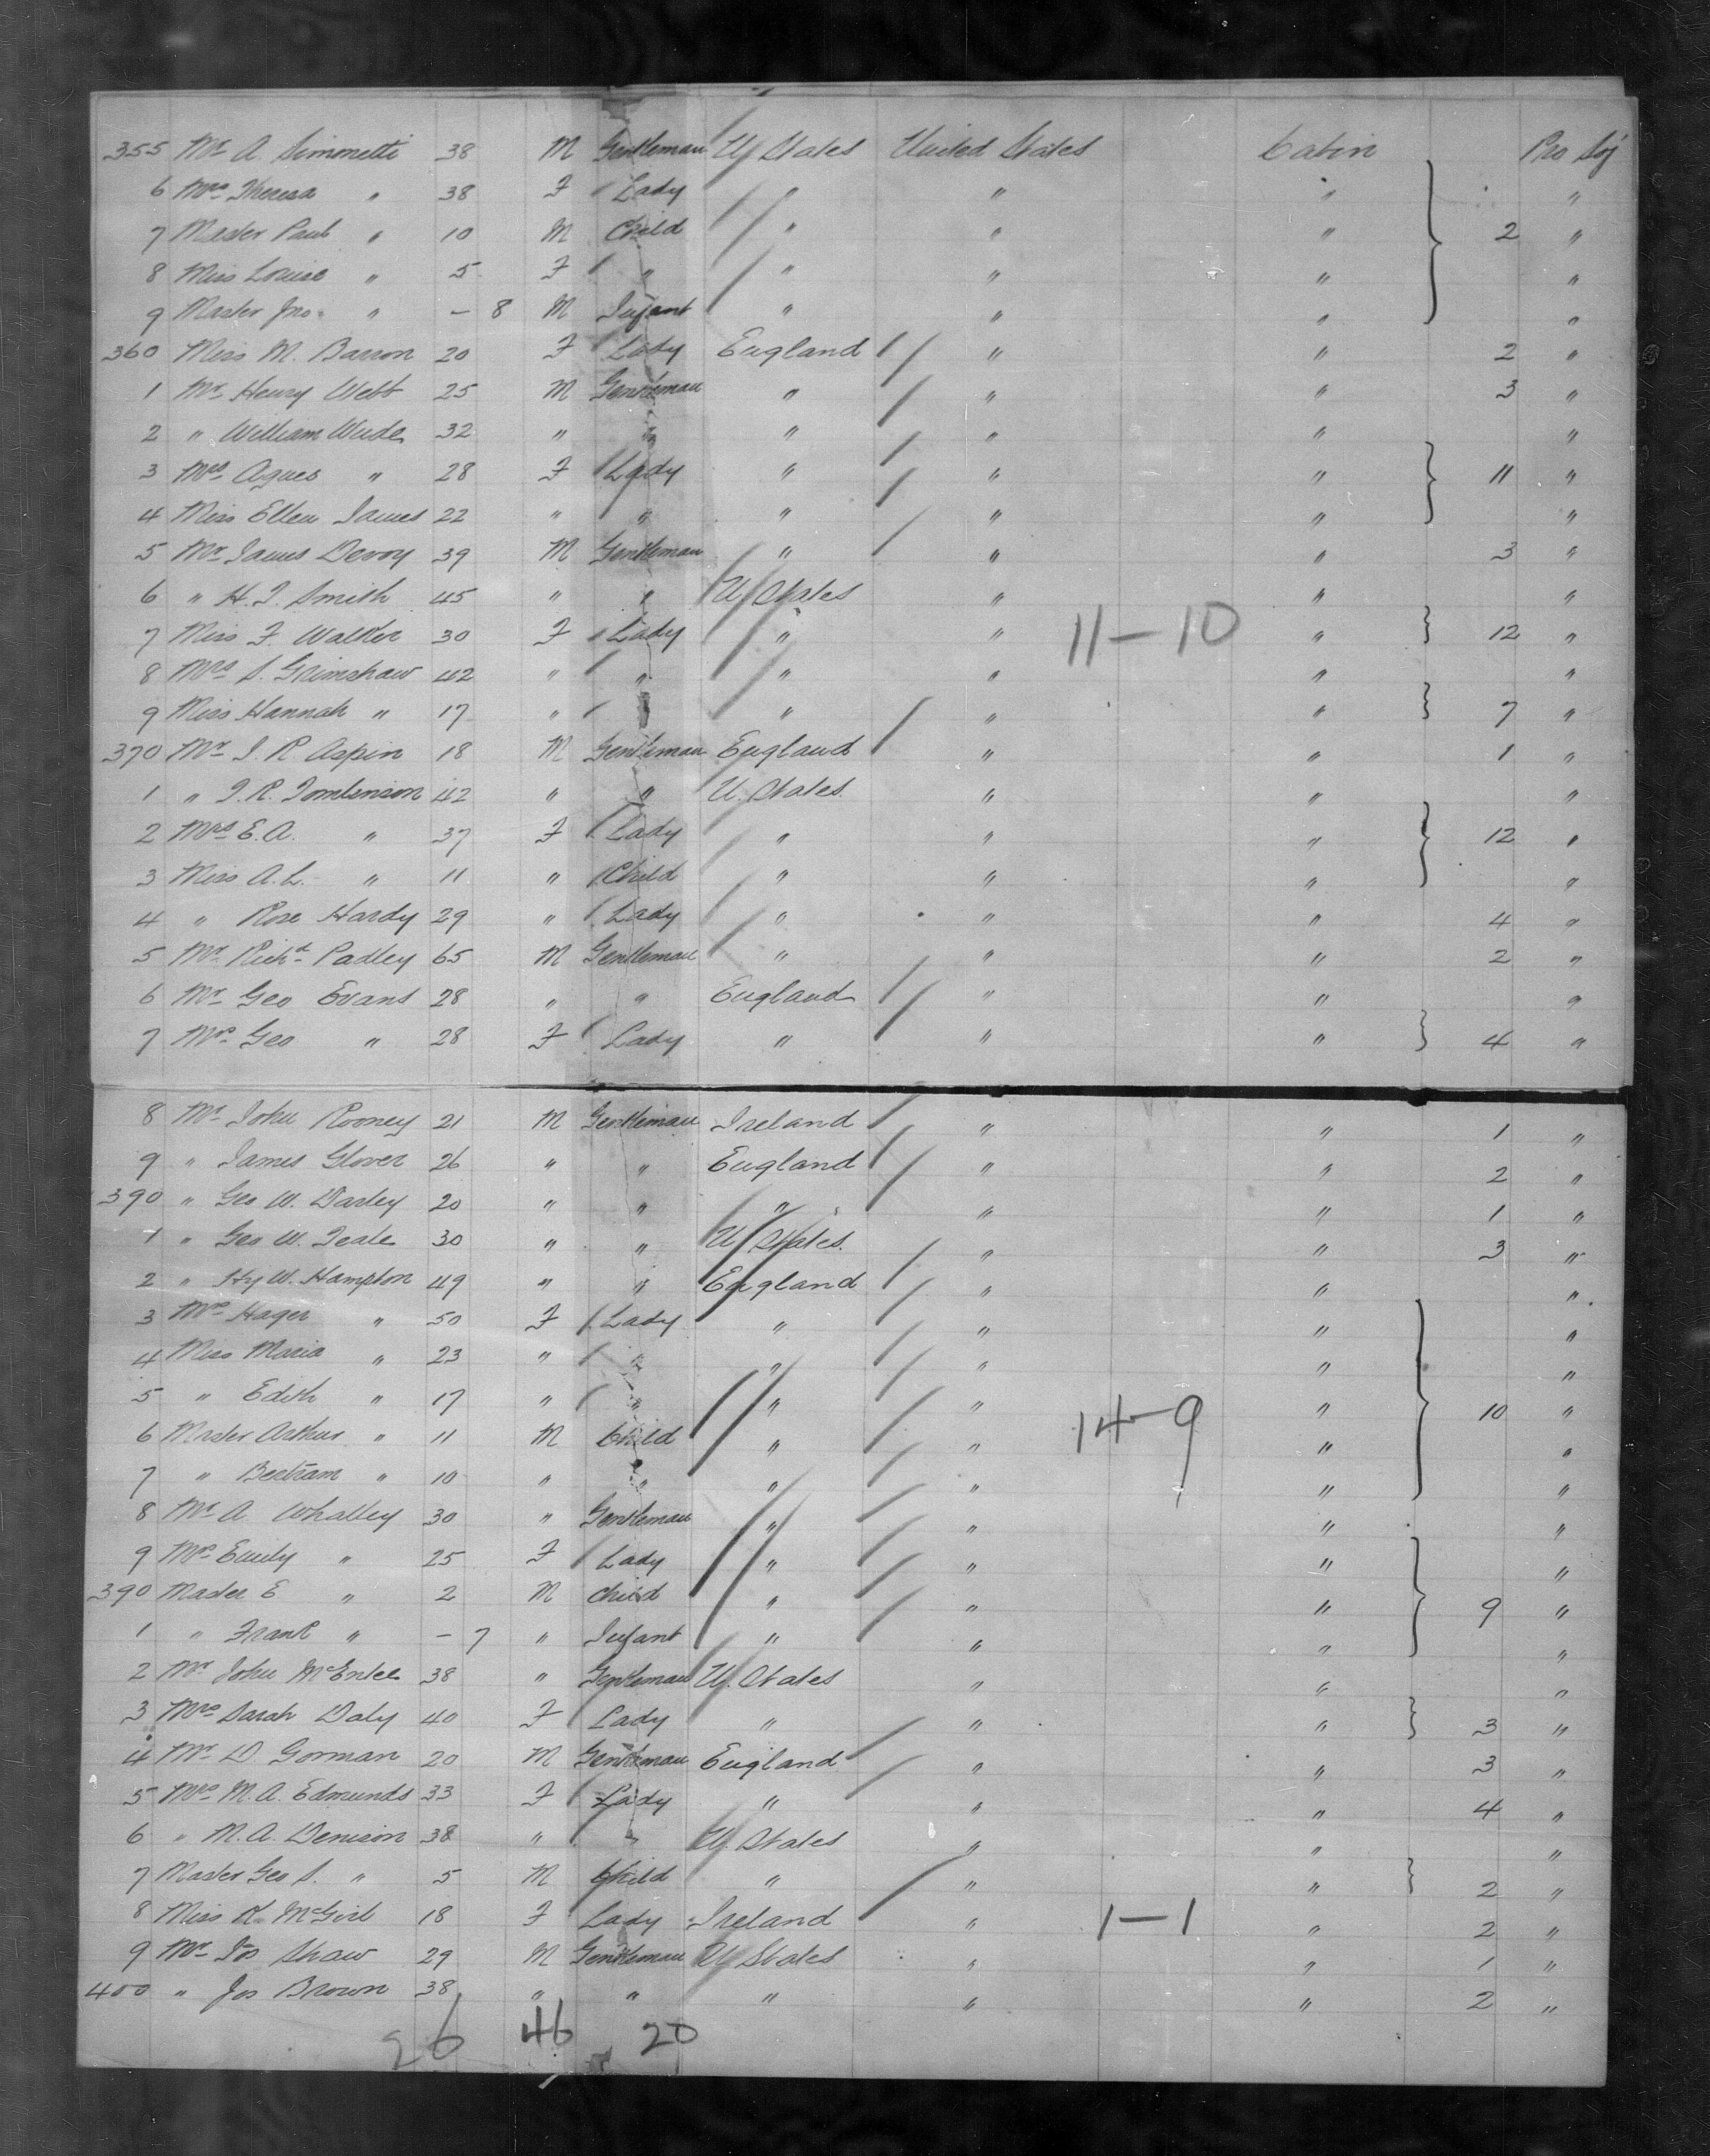 355 Mr A. Simonetti 38 M Gentleman U States United States Cabin Pro Soj
6 Mrs Theresa " 38 F Lady " " " "
7 Master Paul " 10 M Child " " " 2 "
8 Miss Louise " 5 F " " " " "
9 Master Jno. " - 8 M Infant " " " "
360 Miss M. Barron 20 F Lady England " " 2 "
1 Mr Henry Webb 25 M Gentleman " " " 3 "
2 " William Wude 32 " " " " " "
3 Mrs Agnes " 28 F Lady " " " 11 "
4 Miss Ellen James 22 " " " " " "
5 Mr James Devoy 39 M Gentleman " " " 3 "
6 " H. J. Smith 45 " " U States " " "
7 Miss F. Walker 30 F Lady " " 11-10 " 12 "
8 Mrs S. Grimshaw 42 " " " " " "
9 Miss Hannah " 17 " " " " " 7 "
370 Mr J. R Aspin 18 M Gentleman England " " 1 "
1 " J. R. Tomlinson 42 " " U. States. " " "
2 Mrs E. A. " 37 F Lady " " " 12 "
3 Miss A. L. " 11 " Child " " " "
4 " Rose Hardy 29 " Lady " " " 4 "
5 Mr Richd Padley 65 M Gentleman " " " 2 "
6 Mr Geo Evans 28 " " England " " "
7 Mrs Geo " 28 F Lady " " " 4 "
8 Mr John Rooney 21 M Gentleman Ireland " " 1 "
9 " James Glover 26 " " England " " 2 "
390 " Geo W. Darley 20 " " " " " 1 "
1 " Geo W. Teale 30 " " U States. " " 3 "
2 " Hy W. Hampton 49 " " England " " "
3 Mrs Hager " 50 F Lady " " " "
4 Miss Maria " 23 " " " " " "
5 " Edith " 17 " " " " " 10 "
6 Master Arthur " 11 M Child " " 14-9 " "
7 " Bertram " 10 " " " " " "
8 Mr A Whalley 30 " Gentleman " " " "
9 Mrs Emily " 25 F Lady " " " "
390 Master E " 2 M Child " " " 9 "
1 " Frank " - 7 " Infant " " " "
2 Mr John McEntee 38 " Gentleman U. States " " "
3 Mrs Sarah Daly 40 F Lady " " " 3 "
4 Mr D. Gorman 20 M Gentleman England " " 3 "
5 Mrs M. A. Edmunds 33 F Lady " " " 4 "
6 " M. A. Denison 38 " " U. States " " "
7 Master Geo S. " 5 M Child " " " 2 "
8 Miss K. McGirl 18 F Lady Ireland " 1-1 " 2 "
9 Mr Jas Shaw 29 M Gentleman U States " " 1 "
400 " Jos Brown 38 " " " " " 2 "
26 46 20